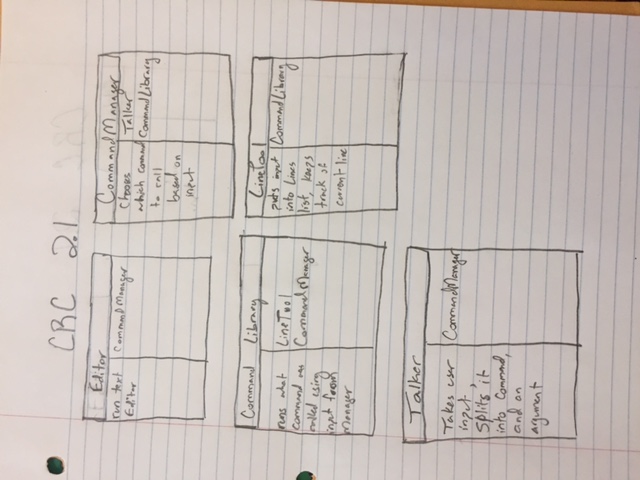 CRC 2.1
Editor
run text
Editor
CommandManager
CommandManager
Chooses
which command
to call
based on
input
Talker
CommandLibrary
Command Library
runs what
command was
called using
input from
Manager
LineTool
CommandManager
LineTool
puts input
into Lines
list, keeps
track of
current line
CommandLibrary
Talker
Takes user
input,
splits it
into Command,
and an
argument
CommandManager